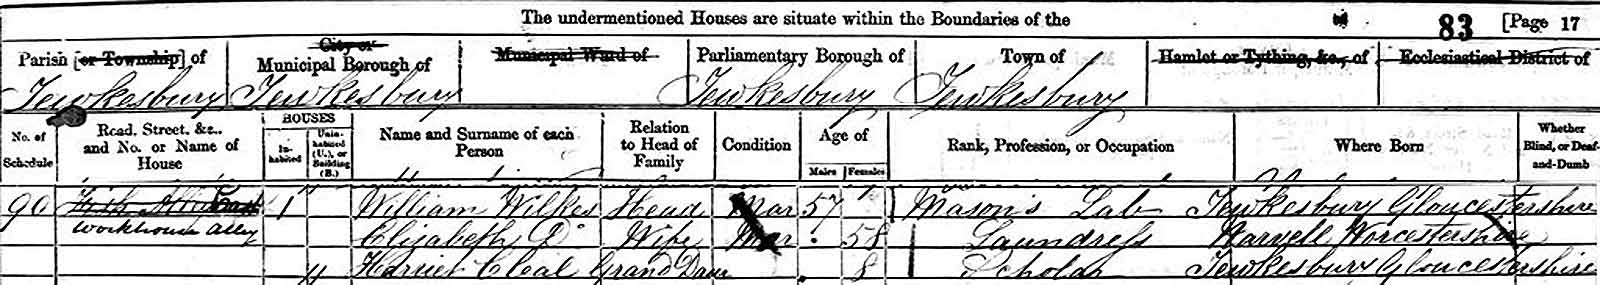 The undermentioned Houses are situate within the Boundaries of the 83 [Page 17
Parish [or Township] of City or Municipal Borough of Municipal Ward of Parliamentary Borough of Town of Hamlet or Tything, &c., of Ecclesiastical District of
Tewkesbury Tewkesbury Tewkesbury Tewkesbury
No. of Schedule Road, Street, &c., and No. or Name of House HOUSES Inhabited Uninhabited (U.), or Building (B.) Name and Surname of each Person Relation to Head of Family Condition Age of Males Females Rank, Profession, or Occupation Where Born Whether Blind, or Deaf-and-Dumb
90 1 William Wilkes Head Mar 57 Mason's Lab Tewkesbury Gloucestershire
Workhouse Alley Elizabeth Do Wife Mar 58 Laundress Worcestershire
Harriet Cleal Grand Daur 8 Scholar Tewkesbury Gloucestershire